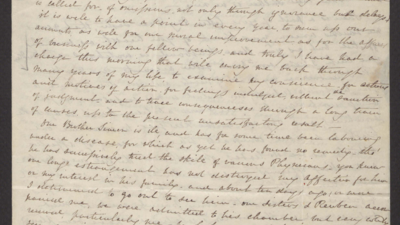 is called for, of omissions, not only through ignorance but delay,
it is well to have a point in every year to sum up our
accounts, as well for our moral improvement as for the affairs
of business with our fellow beings and truly I have had a
charge this morning that well may me back through
many years of my life to examine my conscience for actions
and motives of action for feelings indulged without sanction
of judgment and to trace consequences through a long train
of causes up to the present unsatisfactory result.
Our Brother Simon is ill and has for some time been labouring
under a disease, for which as yet he has found no remedy, tho'
he has anxiously tried the skill of various Physicians, you know
our long estrangement has not destroyed my affection for him
or my interest in his family, and about ten days ago,
I determined to go out to see him. our sister, & Reuben accom
panied me, we were admitted to his chamber
particularly me